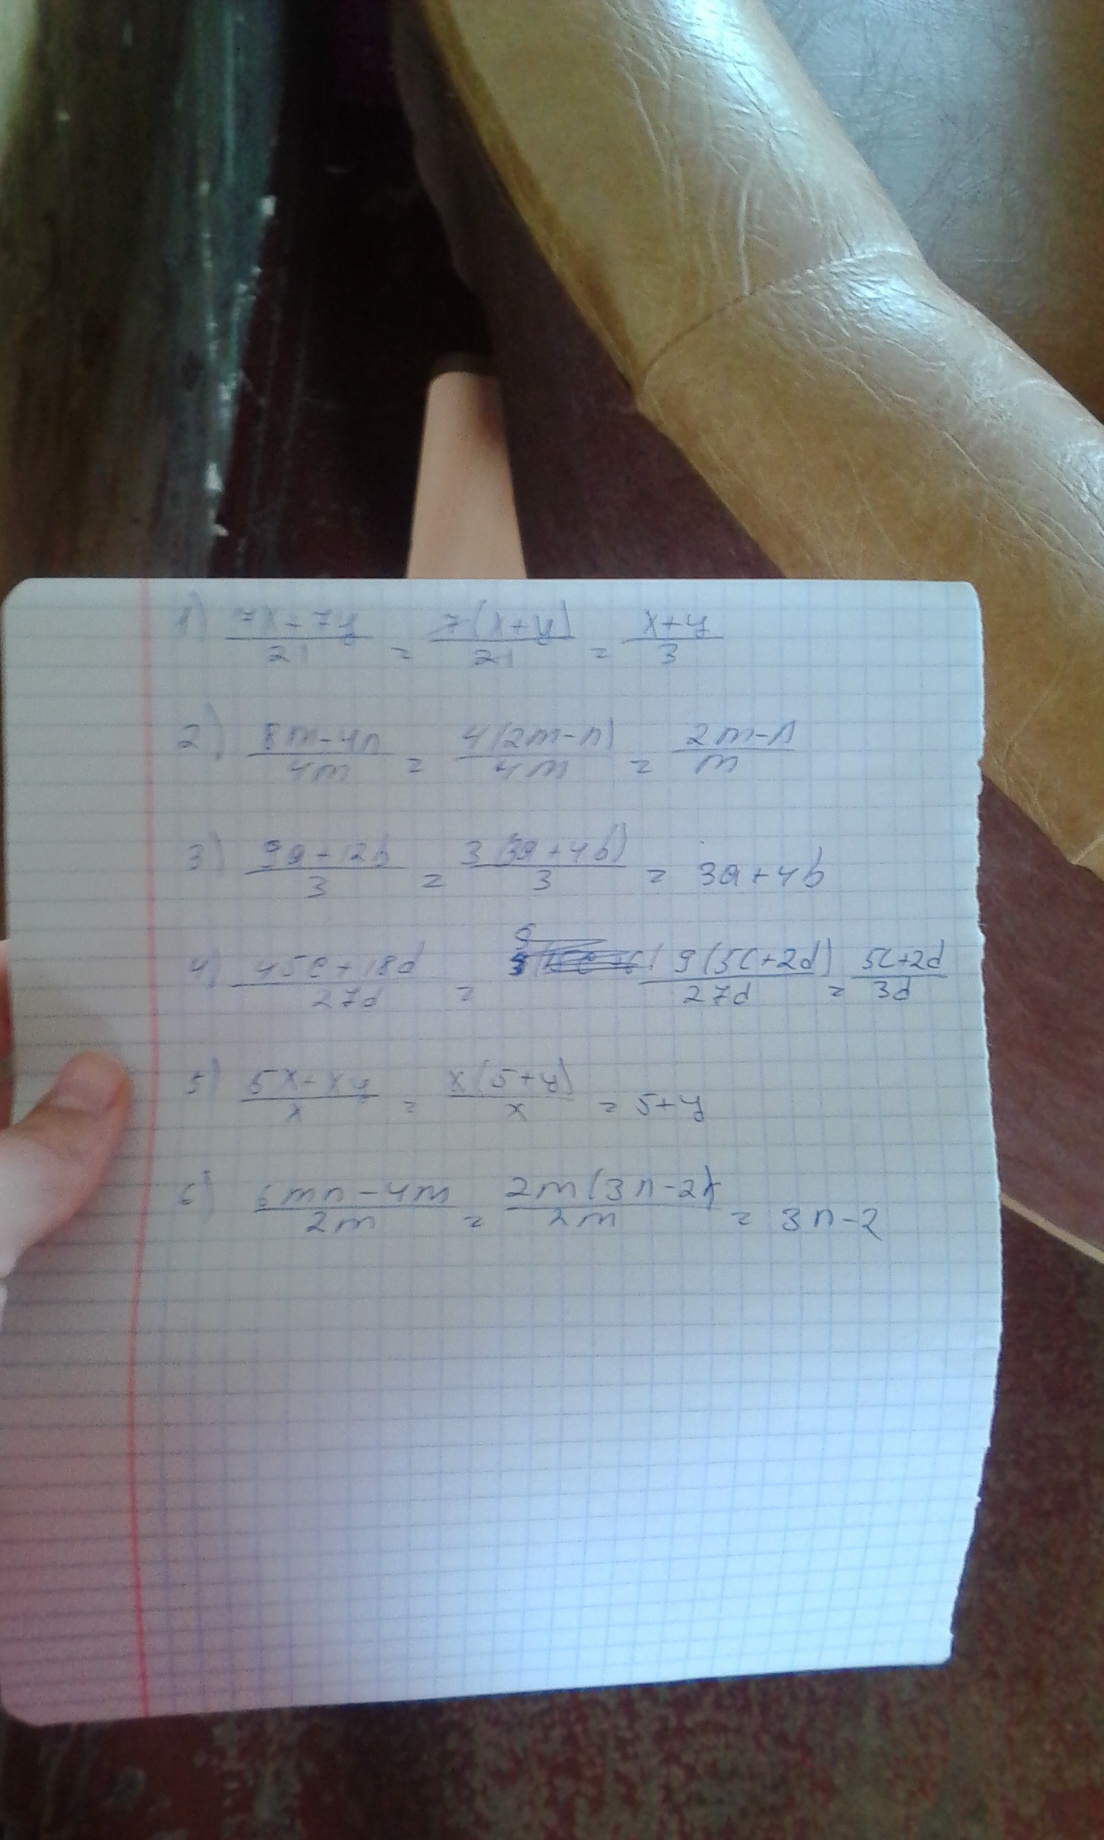 1) (7x+7y)/21 = 7(x+y)/21 = (x+y)/3
2) (8m-4n)/4m = 4(2m-n)/4m = (2m-n)/m
3) (9a+12b)/3 = 3(3a+4b)/3 = 3a+4b
4) (45c+18d)/27d = 9(5c+2d)/27d = (5c+2d)/3d
5) (5x+xy)/x = x(5+y)/x = 5+y
6) (6mn-4m)/2m = 2m(3n-2)/2m = 3n-2